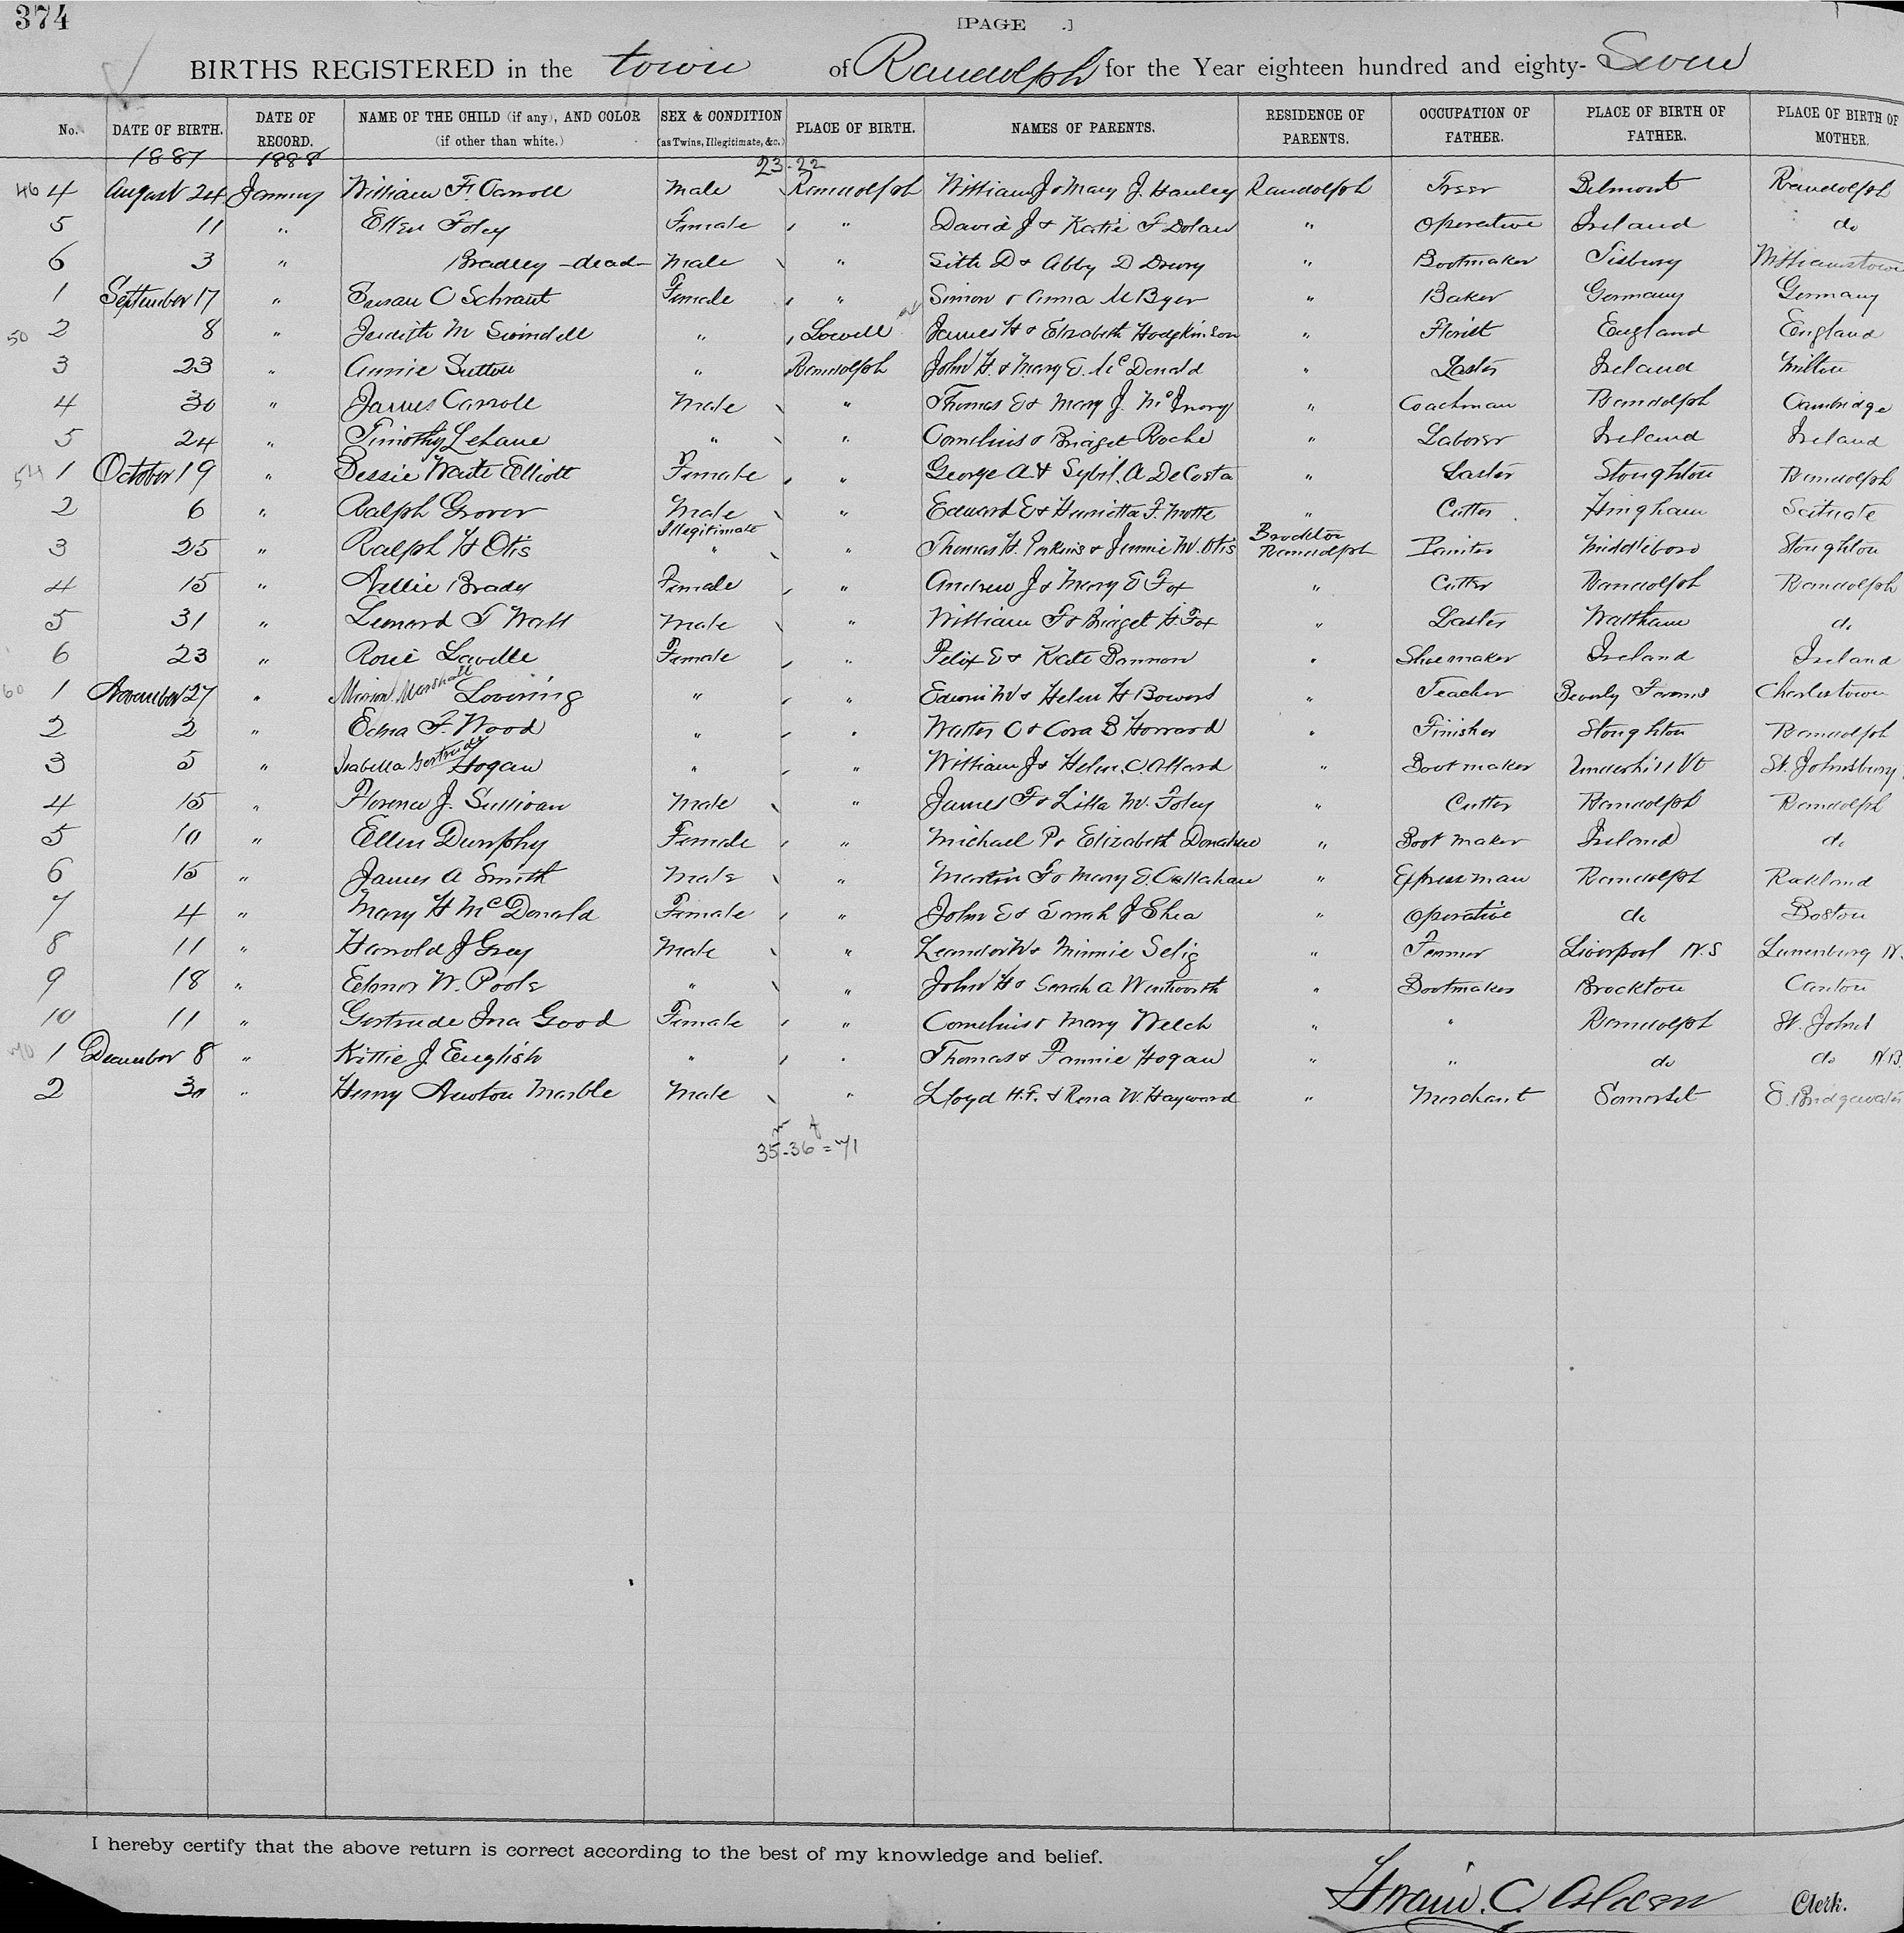 374
[PAGE .]
BIRTHS REGISTERED in the town of Randolph for the Year eighteen hundred and eighty-Seven
No. DATE OF BIRTH. DATE OF RECORD. NAME OF THE CHILD (if any), AND COLOR (if other than white.) SEX & CONDITION (as Twins, Illegitimate, &c.) PLACE OF BIRTH. NAMES OF PARENTS. RESIDENCE OF PARENTS. OCCUPATION OF FATHER. PLACE OF BIRTH OF FATHER. PLACE OF BIRTH OF MOTHER.
1887 1888 23-22
46 4 August 24 January William F. Carroll Male Randolph William J & Mary J. Hanley Randolph Treer Belmont Randolph
5 11 " Ellen Foley Female " David J & Katie F Dolan " Operative Ireland do
6 3 " Bradley - dead - Male " Seth D & Abby D Drury " Bootmaker Tisbury Williamstown
1 September 17 " Susan C Schraut Female " Simon & Anna M Byer " Baker Germany Germany
50 2 8 " Judith M Swindell " Lowell James H & Elizabeth Hodgkinson " Florist England England
3 23 " Annie Sutton " Randolph John H. & Mary E. McDonald " Laster Ireland Milton
4 30 " James Carroll Male " Thomas E & Mary J. " Coachman Randolph Cambridge
5 24 " Timothy Lehane " " Cornelius & Bridget Roche " Laborer Ireland Ireland
54 1 October 19 " Bessie Waite Elliott Female " George A. & Sybil. A DeCosta " Laster Stoughton Randolph
2 6 " Ralph Grover Male " Edward E & Henrietta F. Motte " Cutter Hingham Scituate
3 25 " Ralph H Otis Illegitimate " " Thomas H. Perkins & Jennie W. Otis Brockton Randolph Painter Middleboro Stoughton
4 15 " Nellie Brady Female " Andrew J & Mary E Fox " Cutter Randolph Randolph
5 31 " Leonard T Wall Male " William F & Bridget H. Fox " Laster Waltham do
6 23 " Rosie Laville Female " Felix E & Kate Bannon " Shoemaker Ireland Ireland
60 1 November 27 " Miriam Marshall Lovering " " Edwin W & Helen H Bowers " Teacher Beverly Farms Charlestown
2 2 " Edna F. Wood " " Walter C & Cora B Howard " Finisher Stoughton Randolph
3 5 " Isabella Gertrude Hogan " " William J & Helen. C. Allard " Bootmaker Underhill Vt St. Johnsbury
4 15 " Florence J. Sullivan Male " James F & Lilla M. Foley " Cutter Randolph Randolph
5 10 " Ellen Dunphy Female " Michael P & Elizabeth Donahue " Boot maker Ireland do
6 15 " James A Smith Male " Martin F & Mary E. Callahan " Expressman Randolph Rockland
7 4 " Mary H McDonald Female " John E & Sarah J Shea " Operative do Boston
8 11 " Harrold J Grey Male " Leander W & Minnie Selig " Farmer Liverpool N.S Lunenburg N.
9 18 " W. Poole " " John H & Sarah A Wentworth " Bootmaker Brockton Canton
10 11 " Gertrude Ina Good Female " Cornelius & Mary Welch " " Randolph St. Johns
70 1 December 8 " Kittie J. English " " Thomas & Fannie Hogan " " do do N.B.
2 30 " Henry Newton Marble Male " Lloyd H. F. & Rena W. Hayward " Merchant Somerset E. Bridgewater
m f
35-36 = 71
I hereby certify that the above return is correct according to the best of my knowledge and belief.
Hiram. C. Alden Clerk.